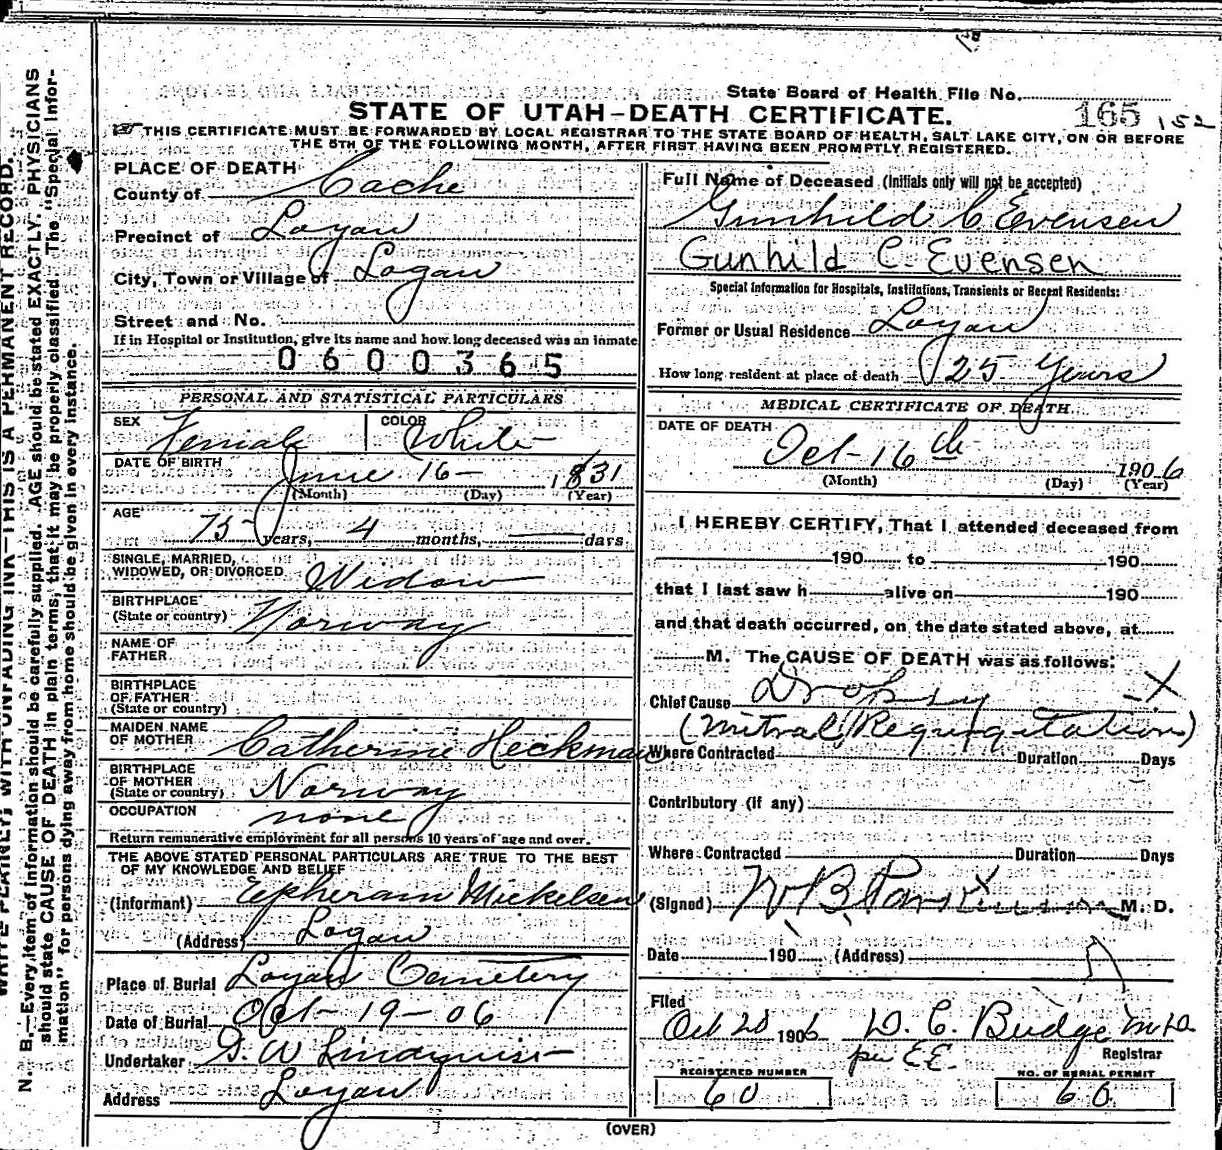 State Board of Health File No. 165 152
STATE OF UTAH-DEATH CERTIFICATE.
THIS CERTIFICATE MUST BE FORWARDED BY LOCAL REGISTRAR TO THE STATE BOARD OF HEALTH, SALT LAKE CITY, ON OR BEFORE
THE 5TH OF THE FOLLOWING MONTH, AFTER FIRST HAVING BEEN PROMPTLY REGISTERED.
PLACE OF DEATH
County of Cache
Precinct of Logan
City, Town or Village of Logan
Street and No.
If in Hospital or Institution, give its name and how long deceased was an inmate
0600365
PERSONAL AND STATISTICAL PARTICULARS
SEX Female COLOR White
DATE OF BIRTH June 16- 1831
(Month) (Day) (Year)
AGE 75 years, 4 months, days
SINGLE, MARRIED,
WIDOWED, OR DIVORCED Widow
BIRTHPLACE
(State or country) Norway
NAME OF
FATHER
BIRTHPLACE
OF FATHER
(State or country)
MAIDEN NAME
OF MOTHER Catherine Heckman
BIRTHPLACE
OF MOTHER
(State or country) Norway
OCCUPATION none
Return remunerative employment for all persons 10 years of age and over.
THE ABOVE STATED PERSONAL PARTICULARS ARE TRUE TO THE BEST
OF MY KNOWLEDGE AND BELIEF
(Informant) Eepheram Mickelsen
(Address) Logan
Place of Burial Logan Cemetery
Date of Burial Oct- 19-06
Undertaker G. W Lindquist
Address Logan
Full Name of Deceased (Initials only will not be accepted)
Gunhild C Evensen
Gunhild C. Evensen
Special Information for Hospitals, Institutions, Transients or Recent Residents:
Former or Usual Residence Logan
How long resident at place of death 25 Years
MEDICAL CERTIFICATE OF DEATH
DATE OF DEATH
Oct-16th 1906
(Month) (Day) (Year)
I HEREBY CERTIFY, That I attended deceased from
190 to 190
that I last saw h alive on 190
and that death occurred, on the date stated above, at
M. The CAUSE OF DEATH was as follows:
Chief Cause Dropsy X
(Mitral Regurgitation)
Where Contracted Duration Days
Contributory (if any)
Where Contracted Duration Days
(Signed) W B Parkinson M. D.
Date 190 (Address)
Filed
Oct 20 1906 D. C. Budge M.D.
per E.E. Registrar
REGISTERED NUMBER NO. OF BURIAL PERMIT
60 60
(OVER)
N. B.—Every item of information should be carefully supplied. AGE should be stated EXACTLY. PHYSICIANS
should state CAUSE OF DEATH in plain terms, that it may be properly classified. The "Special Infor-
mation" for persons dying away from home should be given in every instance.
WRITE PLAINLY, WITH UNFADING INK—THIS IS A PERMANENT RECORD.